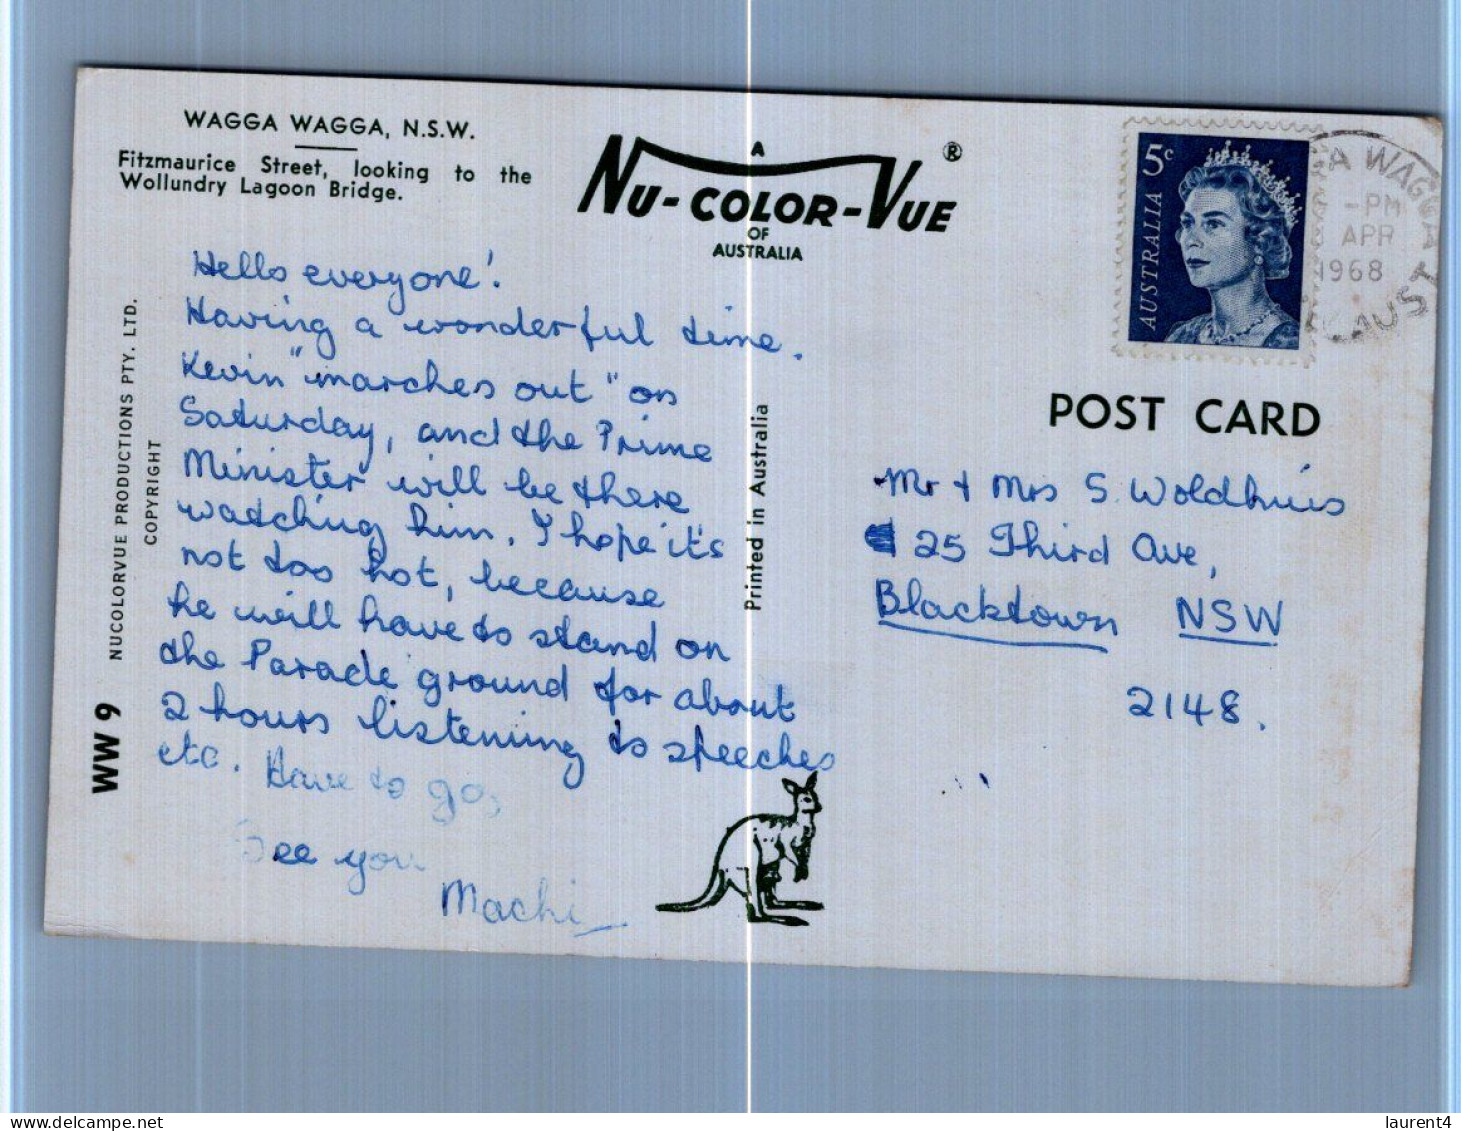 WAGGA WAGGA, N.S.W.
Fitzmaurice Street, looking to the
Wollundry Lagoon Bridge.
A
NU-COLOR-VUE ®
OF
AUSTRALIA
Hello everyone!
Having a wonderful time.
Kevin "marches out" on
Saturday, and the Prime
Minister will be there
watching him. I hope it's
not too hot, because
he will have to stand on
the Parade ground for about
2 hours listening to speeches
etc. Have to go,
See you
Machi
WW 9 NUCOLORVUE PRODUCTIONS PTY. LTD.
COPYRIGHT
Printed in Australia
5c
AUSTRALIA
A WAGGA
-PM
APR
1968
AUST
POST CARD
Mr + Mrs S. Woldhuis
25 Third Ave,
Blacktown NSW
2148.
www.delcampe.net
laurent4